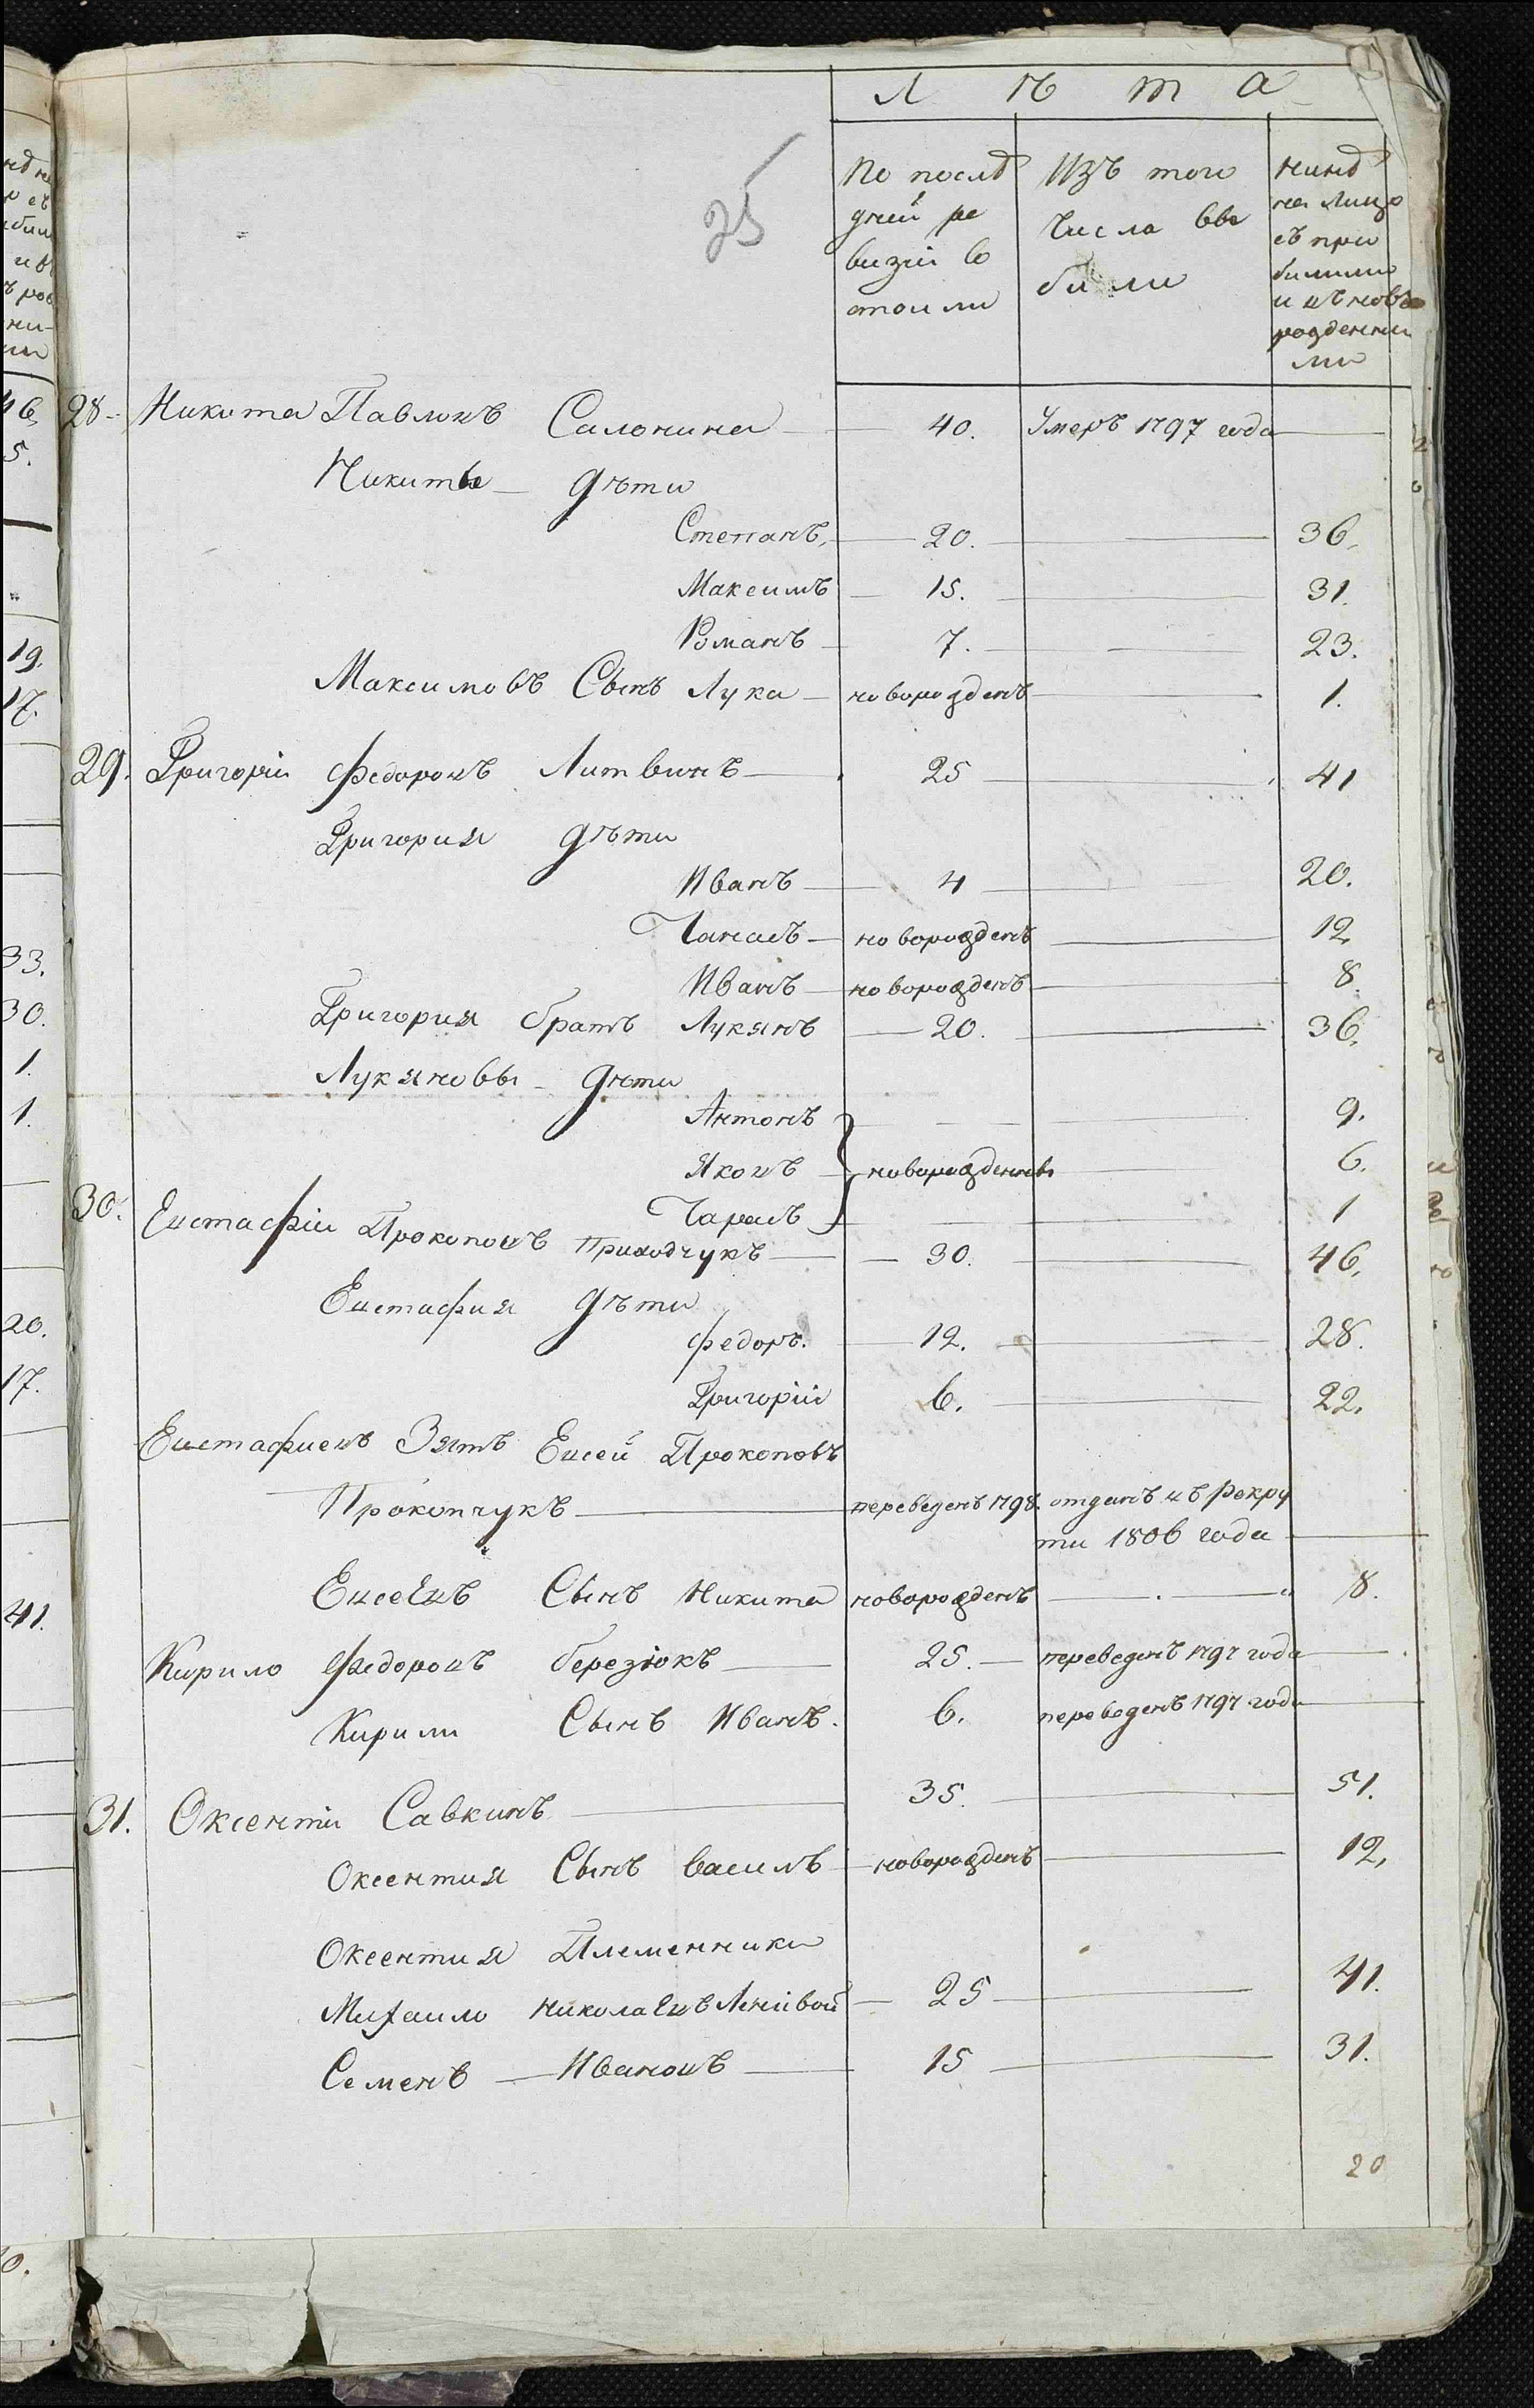 Л ѣ т а
По послѣ
дней ре
визіи со
стоили
Изъ того
числа вы
были
нинѣ
на лицо
съ при
билими
и въ новъ
рожденни
ми
25
28. Никита Павловъ Салонина 40. Умеръ 1797 года
Никиты дѣти
Степанъ, 20. 36.
Максимъ 15. 31.
Романъ 7. 23.
Максимовъ Сынъ Лука новорожденъ 1.
29. Григорій Федоровъ Литвинъ 25 41
Григория дѣти
Иванъ 4 20.
Панасъ новорожденъ 12.
Иванъ новорожденъ 8.
Григория братъ Лукянъ 20. 36.
Лукяновы дѣти
Антонъ 9.
Яковъ новорожденны 6.
Тарасъ 1
30. Евстафіи Прокоповъ Приходчукъ 30. 46.
Евстафия дѣти
Федоръ. 12. 28.
Григорій 6. 22.
Евстафиевъ Зятъ Евсей Прокоповъ
Прокопчукъ переведенъ 1798. отданъ въ рекру
ти 1806 года
Евсеевъ Сынъ Никита новорожденъ 8.
Кирило Федоровъ березюкъ 25. переведенъ 1797 года
Кирили Сынъ Иванъ. 6. переведенъ 1797 года
31. Оксентіи Савкинъ 35. 51.
Оксентия Сынъ василъ новорожденъ 12,
Оксентия Племенники
Михаило николаевъ Ленівой 25 41.
Семенъ Ивановъ 15 31.
20